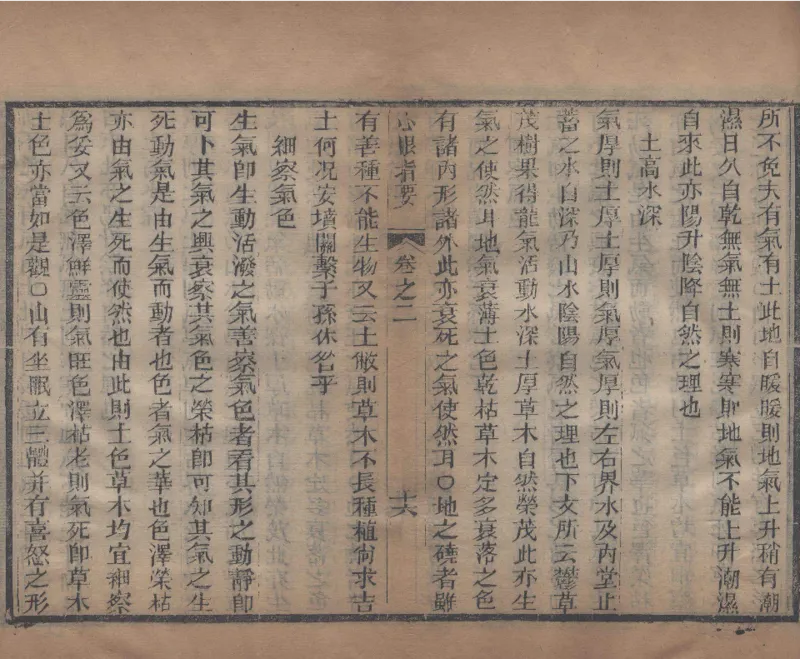 所不免夫有氣有土此地自暖暖則地氣上升稍有潮
濕日久自乾無氣無土則寒寒則地氣不能上升潮濕
自來此亦陽升陰降自然之理也
土高水深
氣厚則土厚土厚則氣厚氣厚則左右界水及內堂止
蓄之水自深乃山水陰陽自然之理也下文所云鬱草
茂樹果得龍氣活動水深土厚草木自然榮茂此亦生
氣之使然耳地氣衰薄土色乾枯草木定多衰落之色
有諸內形諸外此亦衰死之氣使然耳○地之磽者雖
心眼指要
卷之二
十六
有善種不能生物又云土敝則草木不長種植尚求吉
土何况安墳關繫子孫休咎乎
細察氣色
生氣卽生動活潑之氣善察氣色者看其形之動靜卽
可卜其氣之興衰察其氣色之榮枯卽可知其氣之生
死動氣是由生氣而動者也色者氣之華也色澤榮枯
亦由氣之生死而使然也由此則土色草木均宜細察
爲妥又云色澤鮮靈則氣旺色澤枯老則氣死卽草木
土色亦當如是觀○山有坐眠立三體并有喜怒之形